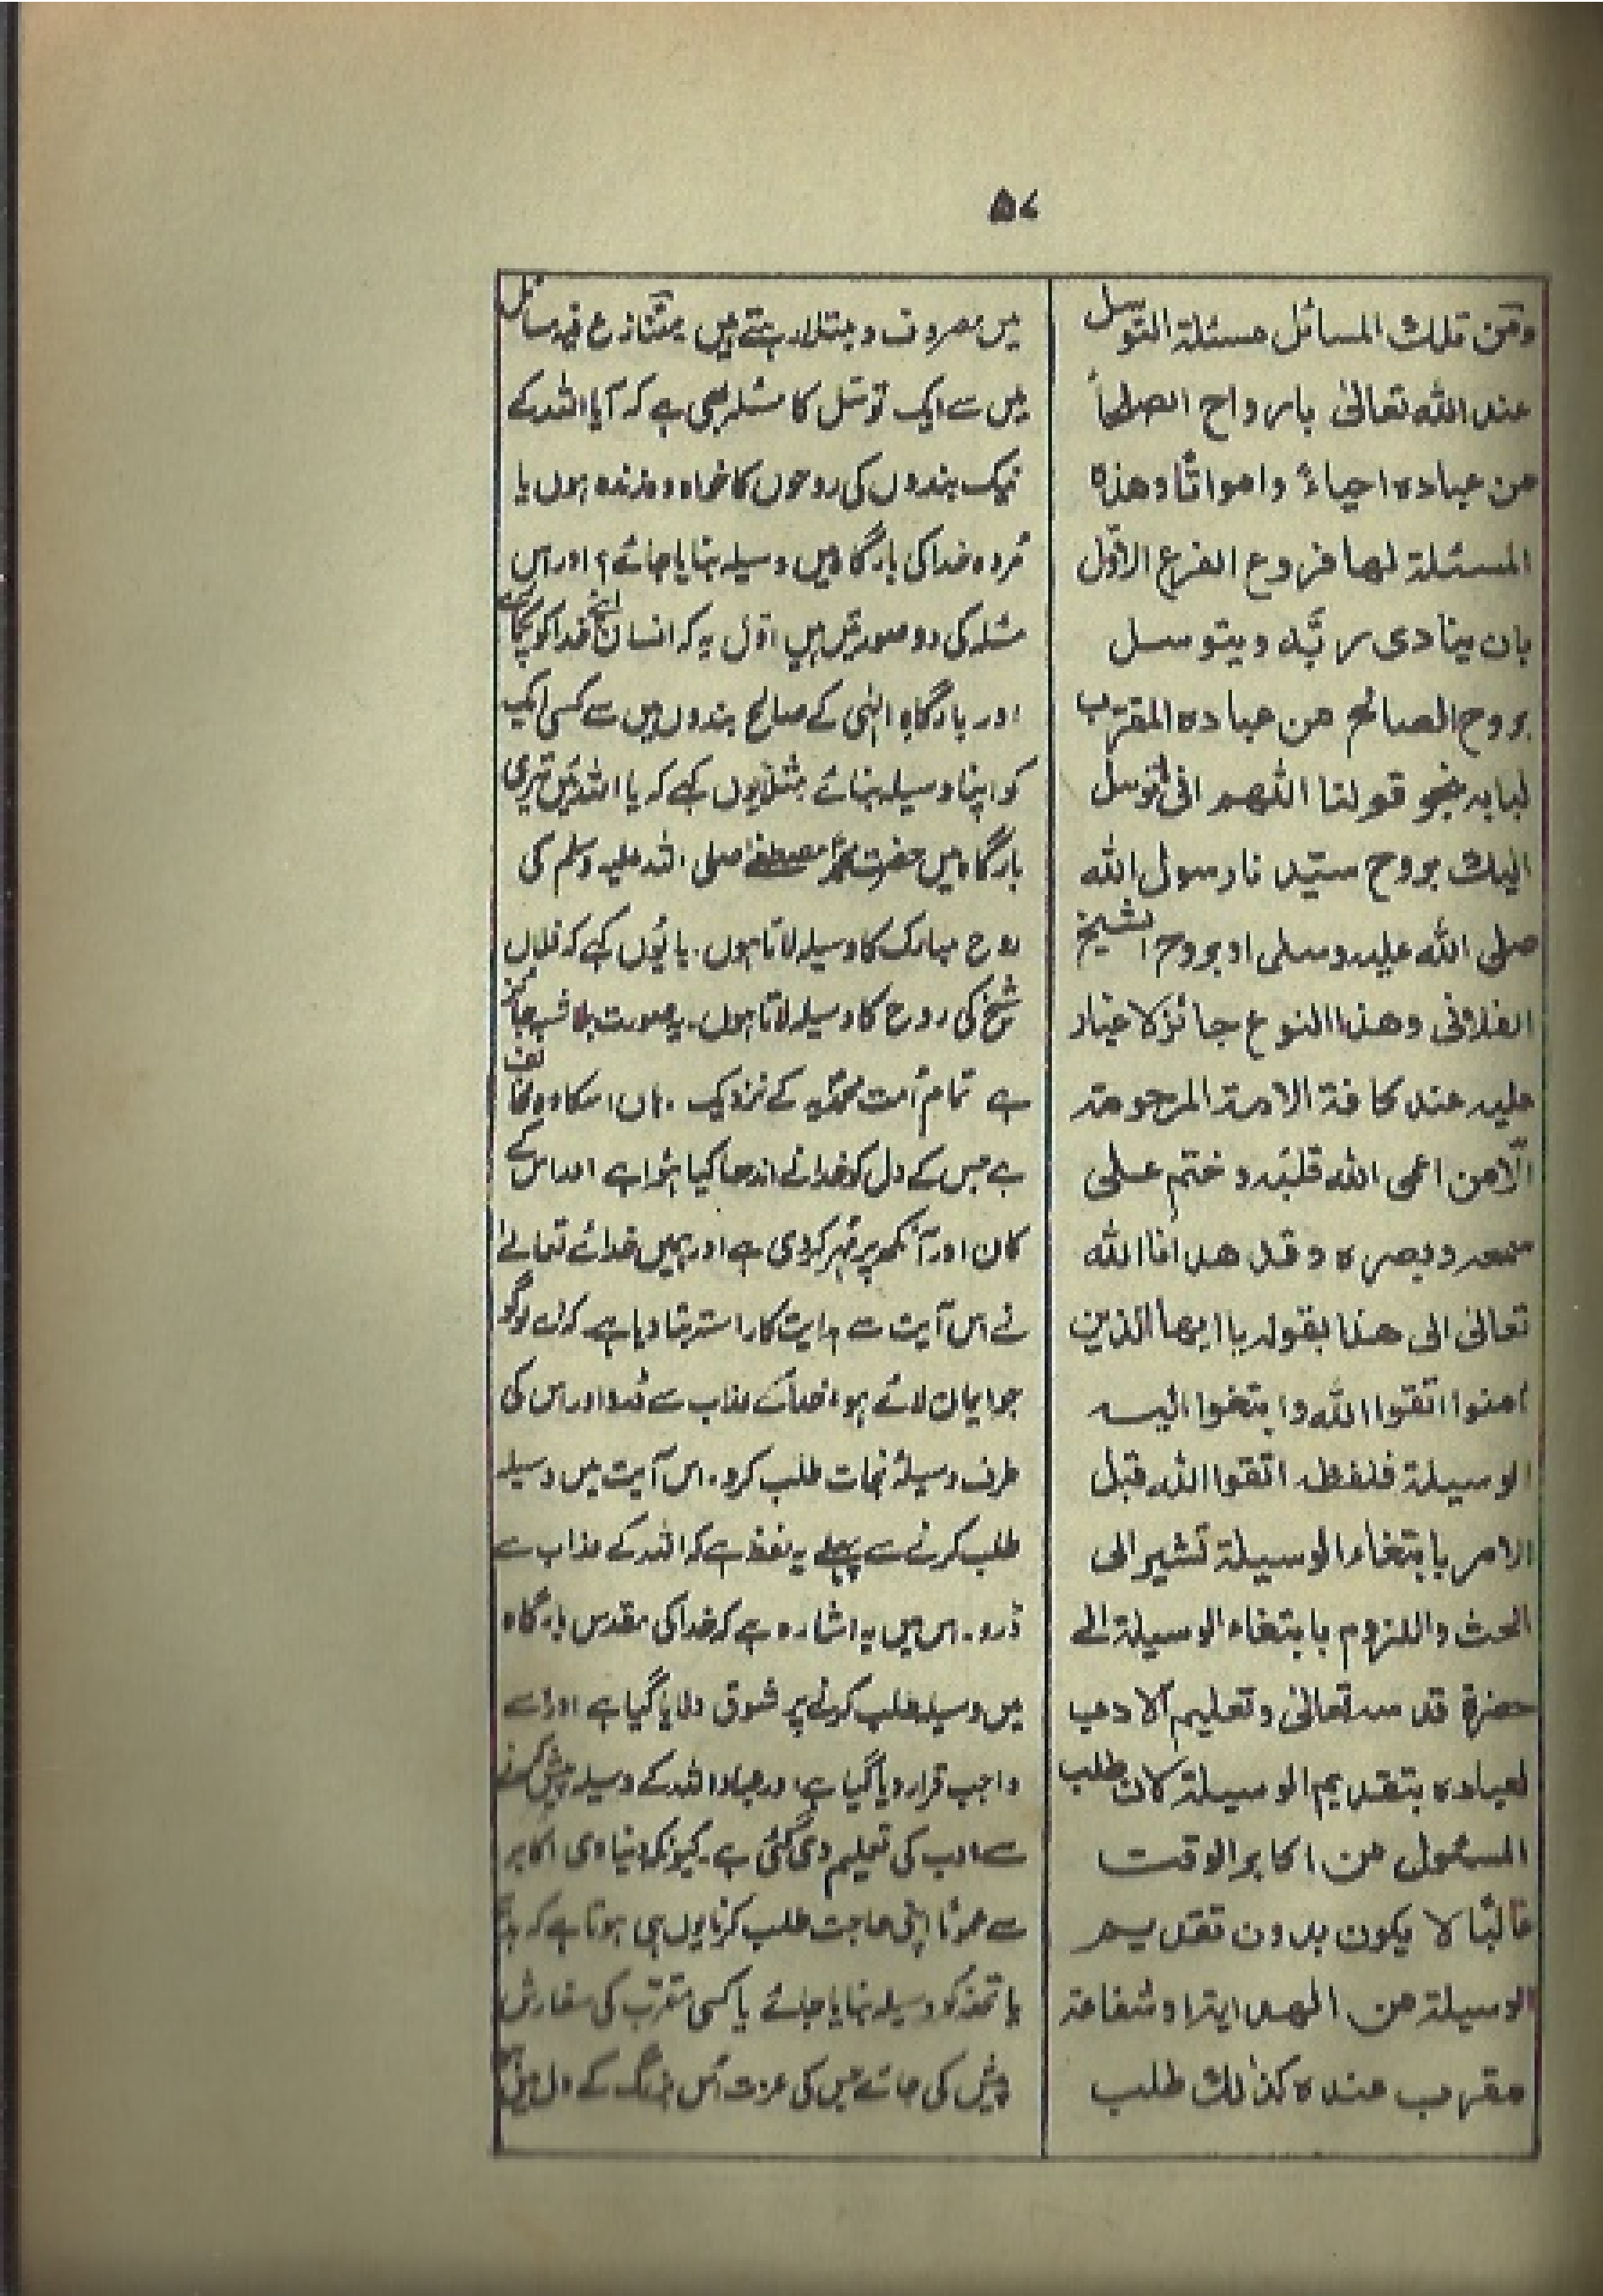 ۵۷
ومن تلك المسائل مسئلة التوسل
عند الله تعالىٰ بارواح الصلحاً
من عباده احياءً وامواتًا وهذه
المسئلة لها فروع الفرع الاوّل
بان ينادى ربَّه ويتوسل
بروح الصالح من عباده المقرب
لبابه نحو قولنا اللهم انى اتوسل
اليك بروح سيّدنا رسول الله
صلى الله عليه وسلم او بروح الشيخ
الفلانى وهذا النوع جائز لا غبار
عليه عند كافة الامة المرحومة
الّا من اعمى الله قلبه وختم على
سمعه وبصره وقد هدانا الله
تعالىٰ الى هذا بقوله يا ايها الذين
آمنوا اتقوا الله وابتغوا اليه
الوسيلة فلفظه اتقوا الله قبل
الامر بابتغاء الوسيلة تشير الى
الحث واللزوم بابتغاء الوسيلة الى
حضرة قدسه تعالىٰ وتعليم الادب
لعباده بتقديم الوسيلة كان طلب
المسئول من اكابر الوقت
غالبًا لا يكون بدون تقديم
الوسيلة من الهدايةاو شفاعة
مقرب عنده كذلك طلب
میں مصروف و مبتلا رہتے ہیں متنازع فیہ مسائل
میں سے ایک توسّل کا مسئلہ بھی ہے کہ آیا اللہ کے
نیک بندوں کی روحوں کا خواہ وہ زندہ ہوں یا
مُردہ خدا کی بارگاہ میں وسیلہ بنایا جائے؟ اور اس
مسئلہ کی دو صورتیں ہیں اوّل یہ کہ انسان اپنے خدا کو پکارے
اور بارگاہِ الٰہی کے صالح بندوں میں سے کسی ایک
کو اپنا وسیلہ بنائے مثلاً یوں کہے کہ یا اللہ میں تیری
بارگاہ میں حضرت محمد مصطفےٰ صلی اللہ علیہ وسلم کی
روح مبارک کا وسیلہ لاتا ہوں۔ یا یُوں کہے کہ فلاں
شیخ کی روح کا وسیلہ لاتا ہوں۔ یہ صورت بلا شبہ جائز
ہے تمام اُمت محمدیہ کے نزدیک۔ ہاں اس کا وہ مخالف
ہے جس کے دل کو خدا نے اندھا کیا ہُوا ہے اور اس کے
کان اور آنکھ پر مُہر کر دی ہے اور ہمیں خدائے تعالےٰ
نے اس آیت سے ہدایت کا راستہ بتا دیا ہے کہ اے لوگو
جو ایمان لائے ہو، خدا کے عذاب سے ڈرو اور اس کی
طرف وسیلۂ نجات طلب کرو۔ اس آیت میں وسیلہ
طلب کرنے سے پہلے یہ لفظ ہے کہ اللہ کے عذاب سے
ڈرو۔ اس میں یہ اشارہ ہے کہ خدا کی مقدس بارگاہ
میں وسیلہ طلب کرنے پر شوق دلایا گیا ہے اور اسے
واجب قرار دیا گیا ہے اور عباد اللہ کے وسیلہ پیش کرنے
سے ادب کی تعلیم دی گئی ہے۔ کیونکہ دنیاوی اکابر
سے عموماً اپنی حاجت طلب کرنا یوں ہی ہوتا ہے کہ
یا تحفہ کو وسیلہ بنایا جائے یا کسی مقرب کی سفارش
پیش کی جائے جس کی عزت اس بزرگ کے دل میں